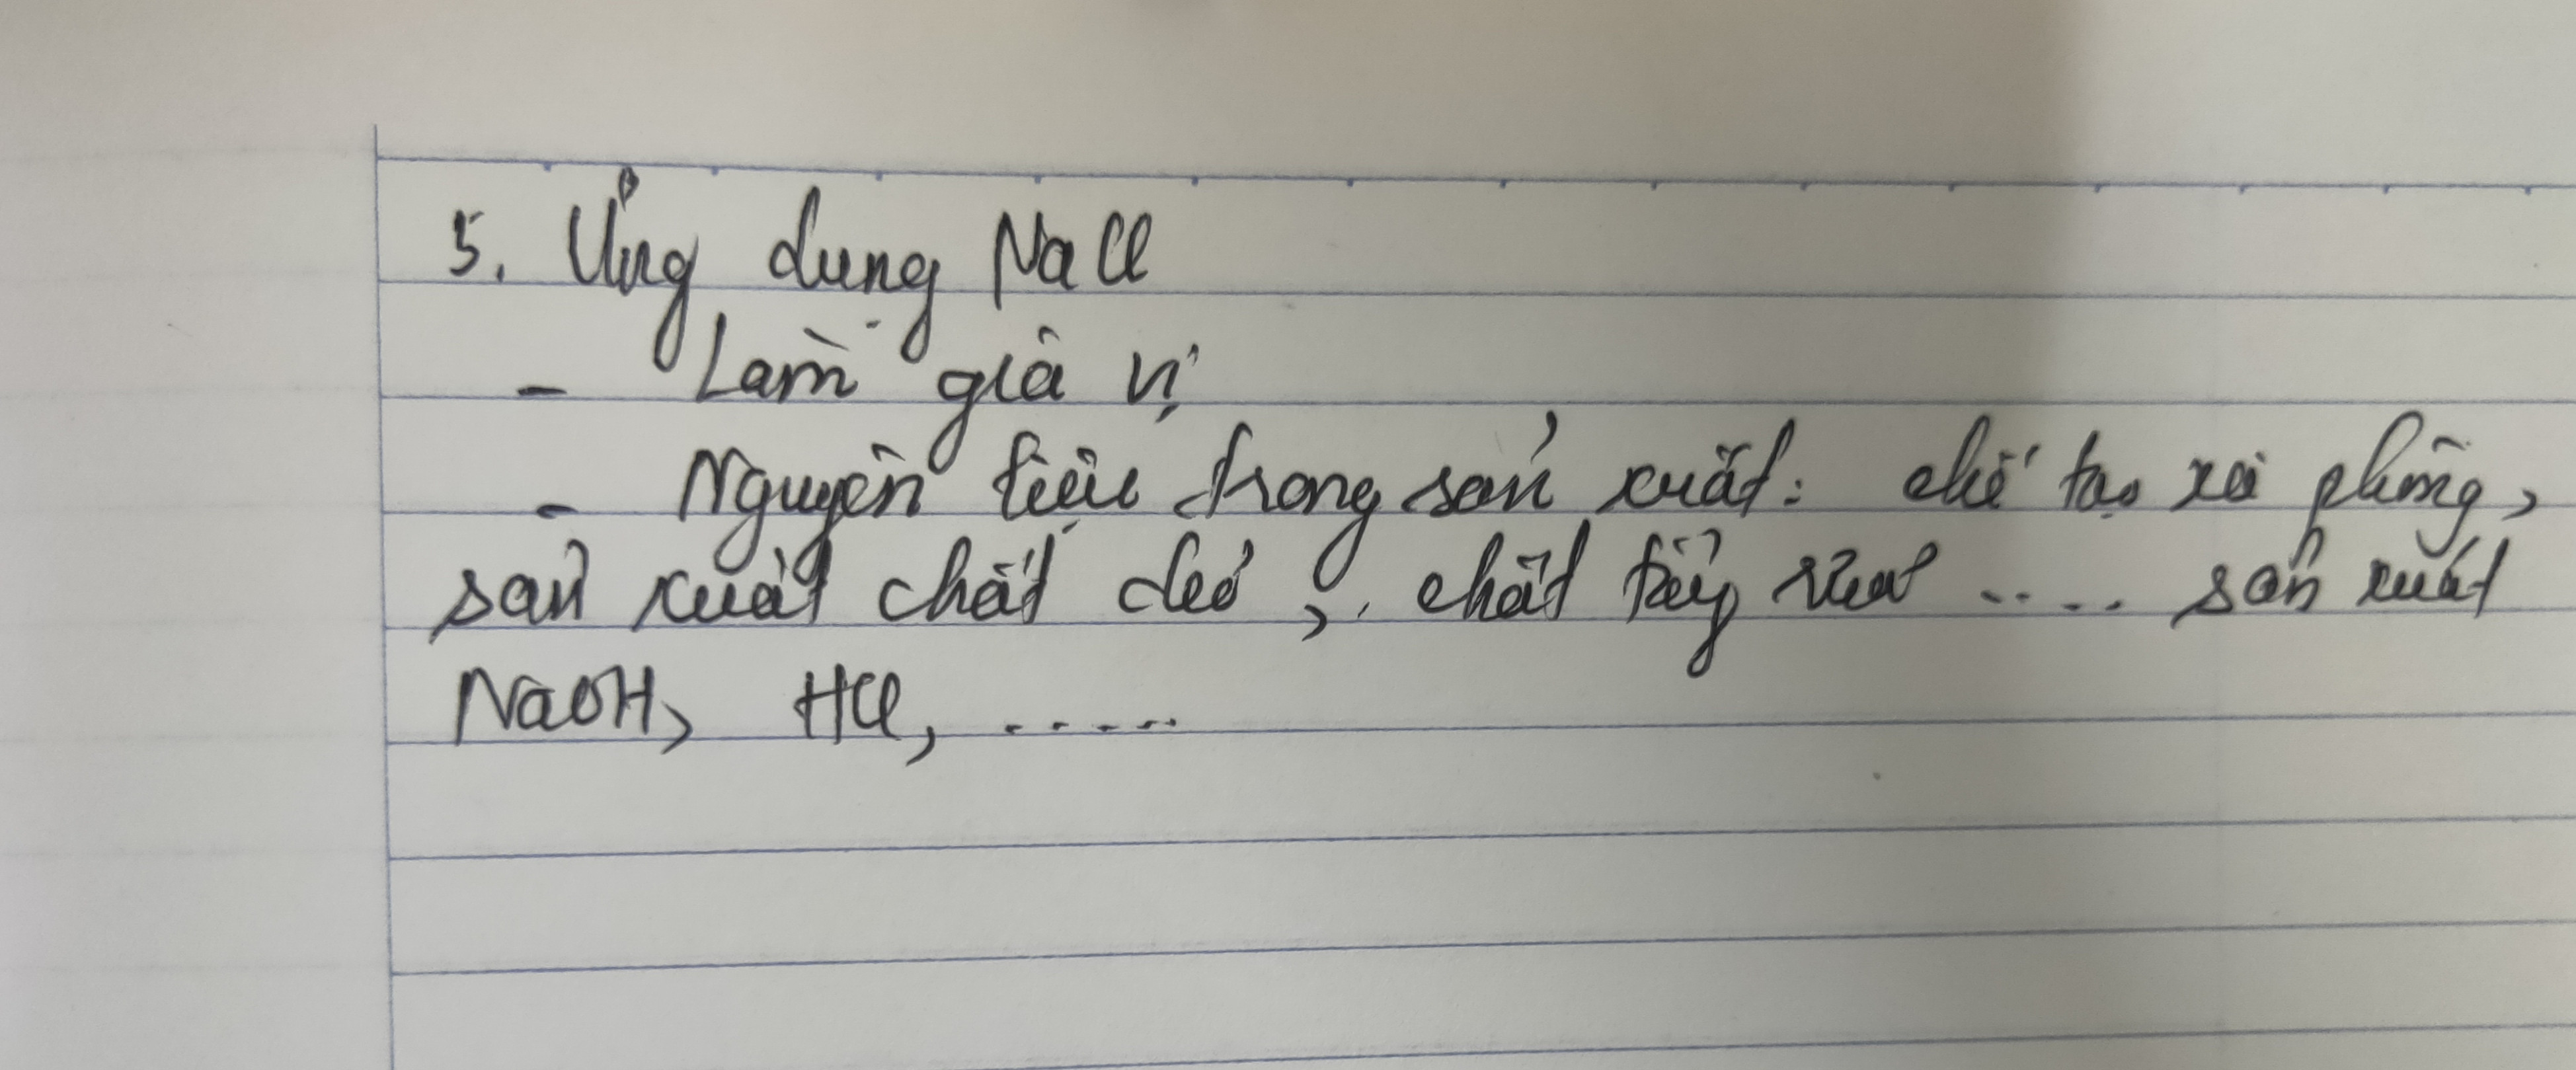 5. Ứng dụng NaCl
- Làm gia vị
- Nguyên liệu trong sản xuất: chế tạo xà phòng,
sản xuất chất dẻo, chất tẩy rửa .... sản xuất
NaOH, HCl, .....